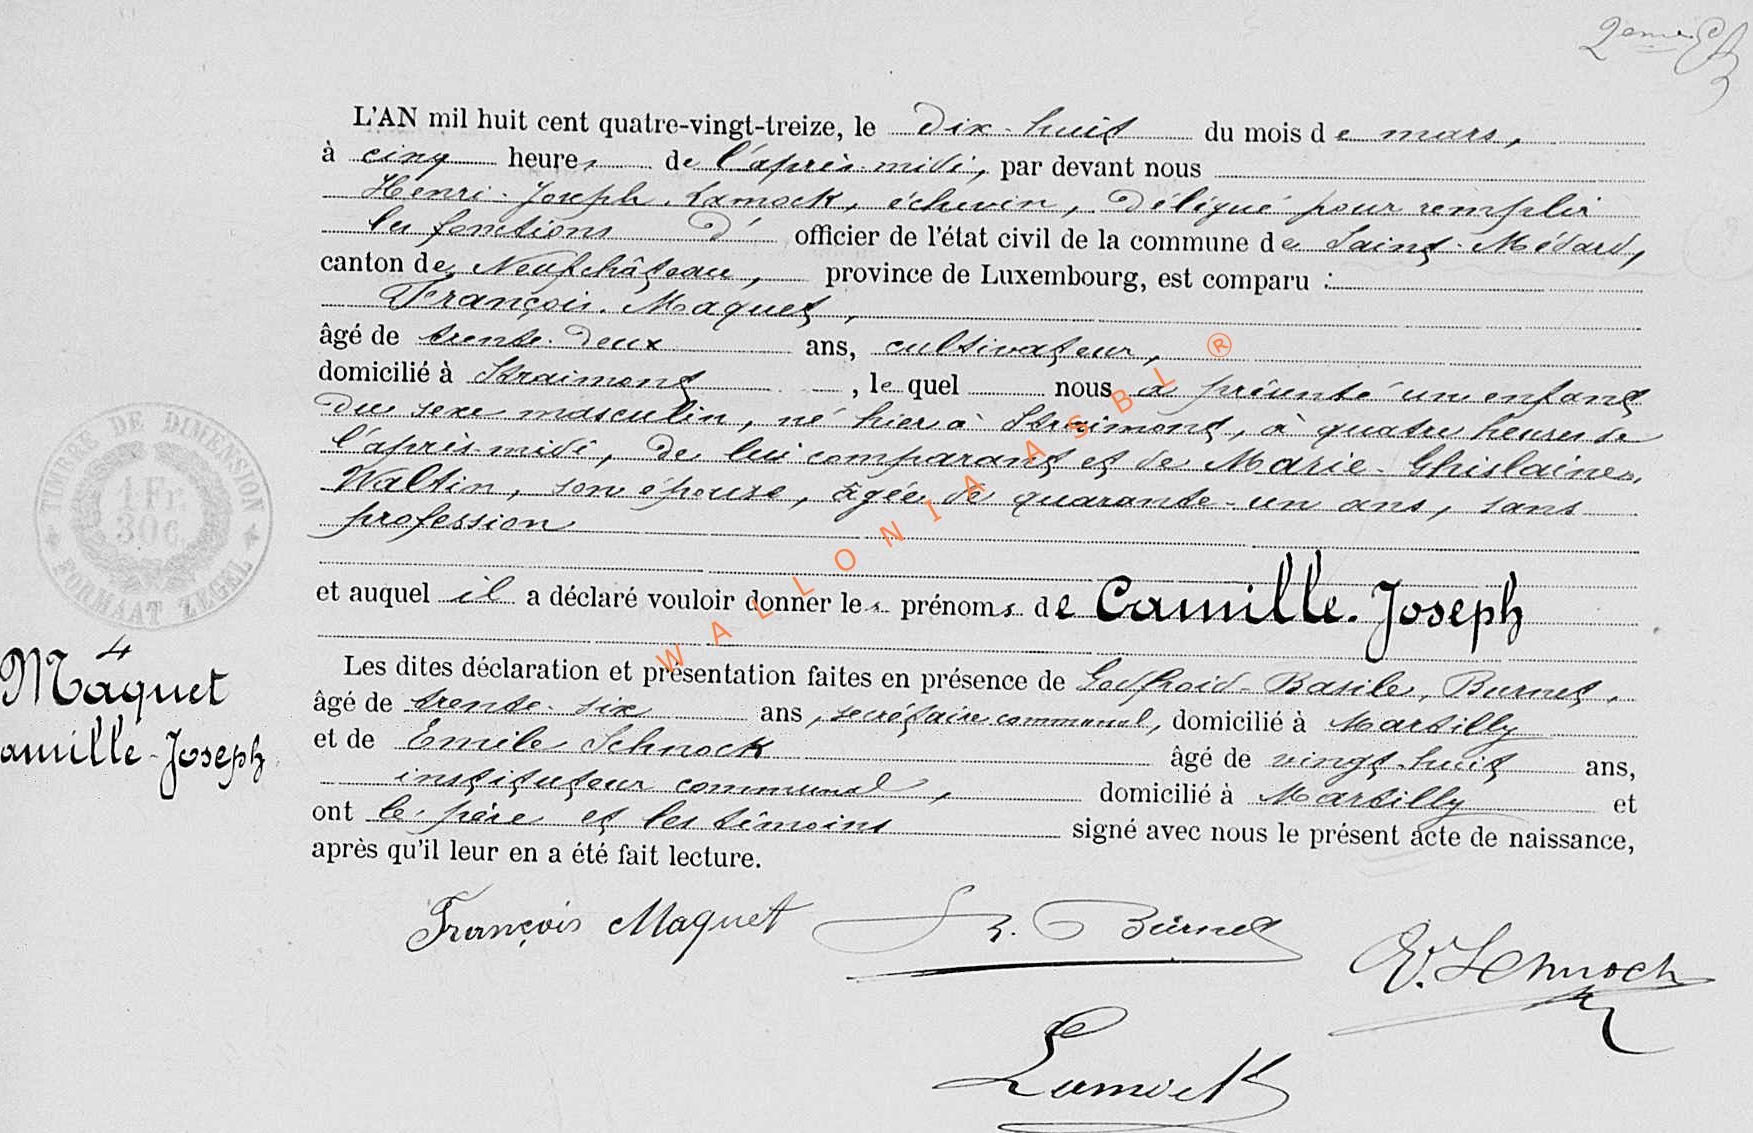 2eme
L'AN mil huit cent quatre-vingt-treize, le dix-huit du mois de mars,
à cinq heures de l'après-midi, par devant nous
Henri-Joseph Lamock, échevin, délégué pour remplir
les fonctions d' officier de l'état civil de la commune de Saint-Médard,
canton de Neufchâteau, province de Luxembourg, est comparu :
François Maquet,
âgé de trente-deux ans, cultivateur,
domicilié à Straimont, lequel nous a présenté un enfant
du sexe masculin, né hier à Straimont, à quatre heures de
l'après-midi, de lui comparant et de Marie-Ghislaine
Waltin, son épouse, âgée de quarante-un ans, sans
profession
et auquel il a déclaré vouloir donner les prénoms de Camille-Joseph
Les dites déclaration et présentation faites en présence de Godfroid-Basile Burnet,
âgé de trente-six ans, secrétaire communal, domicilié à Martilly
et de Emile Schnock âgé de vingt-huit ans,
instituteur communal, domicilié à Martilly et
ont le père et les témoins signé avec nous le présent acte de naissance,
après qu'il leur en a été fait lecture.
TIMBRE DE DIMENSION
1 Fr.
30 c.
FORMAAT ZEGEL
4
Maquet
amille-Joseph
François Maquet
Burnet
E. Schnock
Lamock
WALLONIA ASBL ®